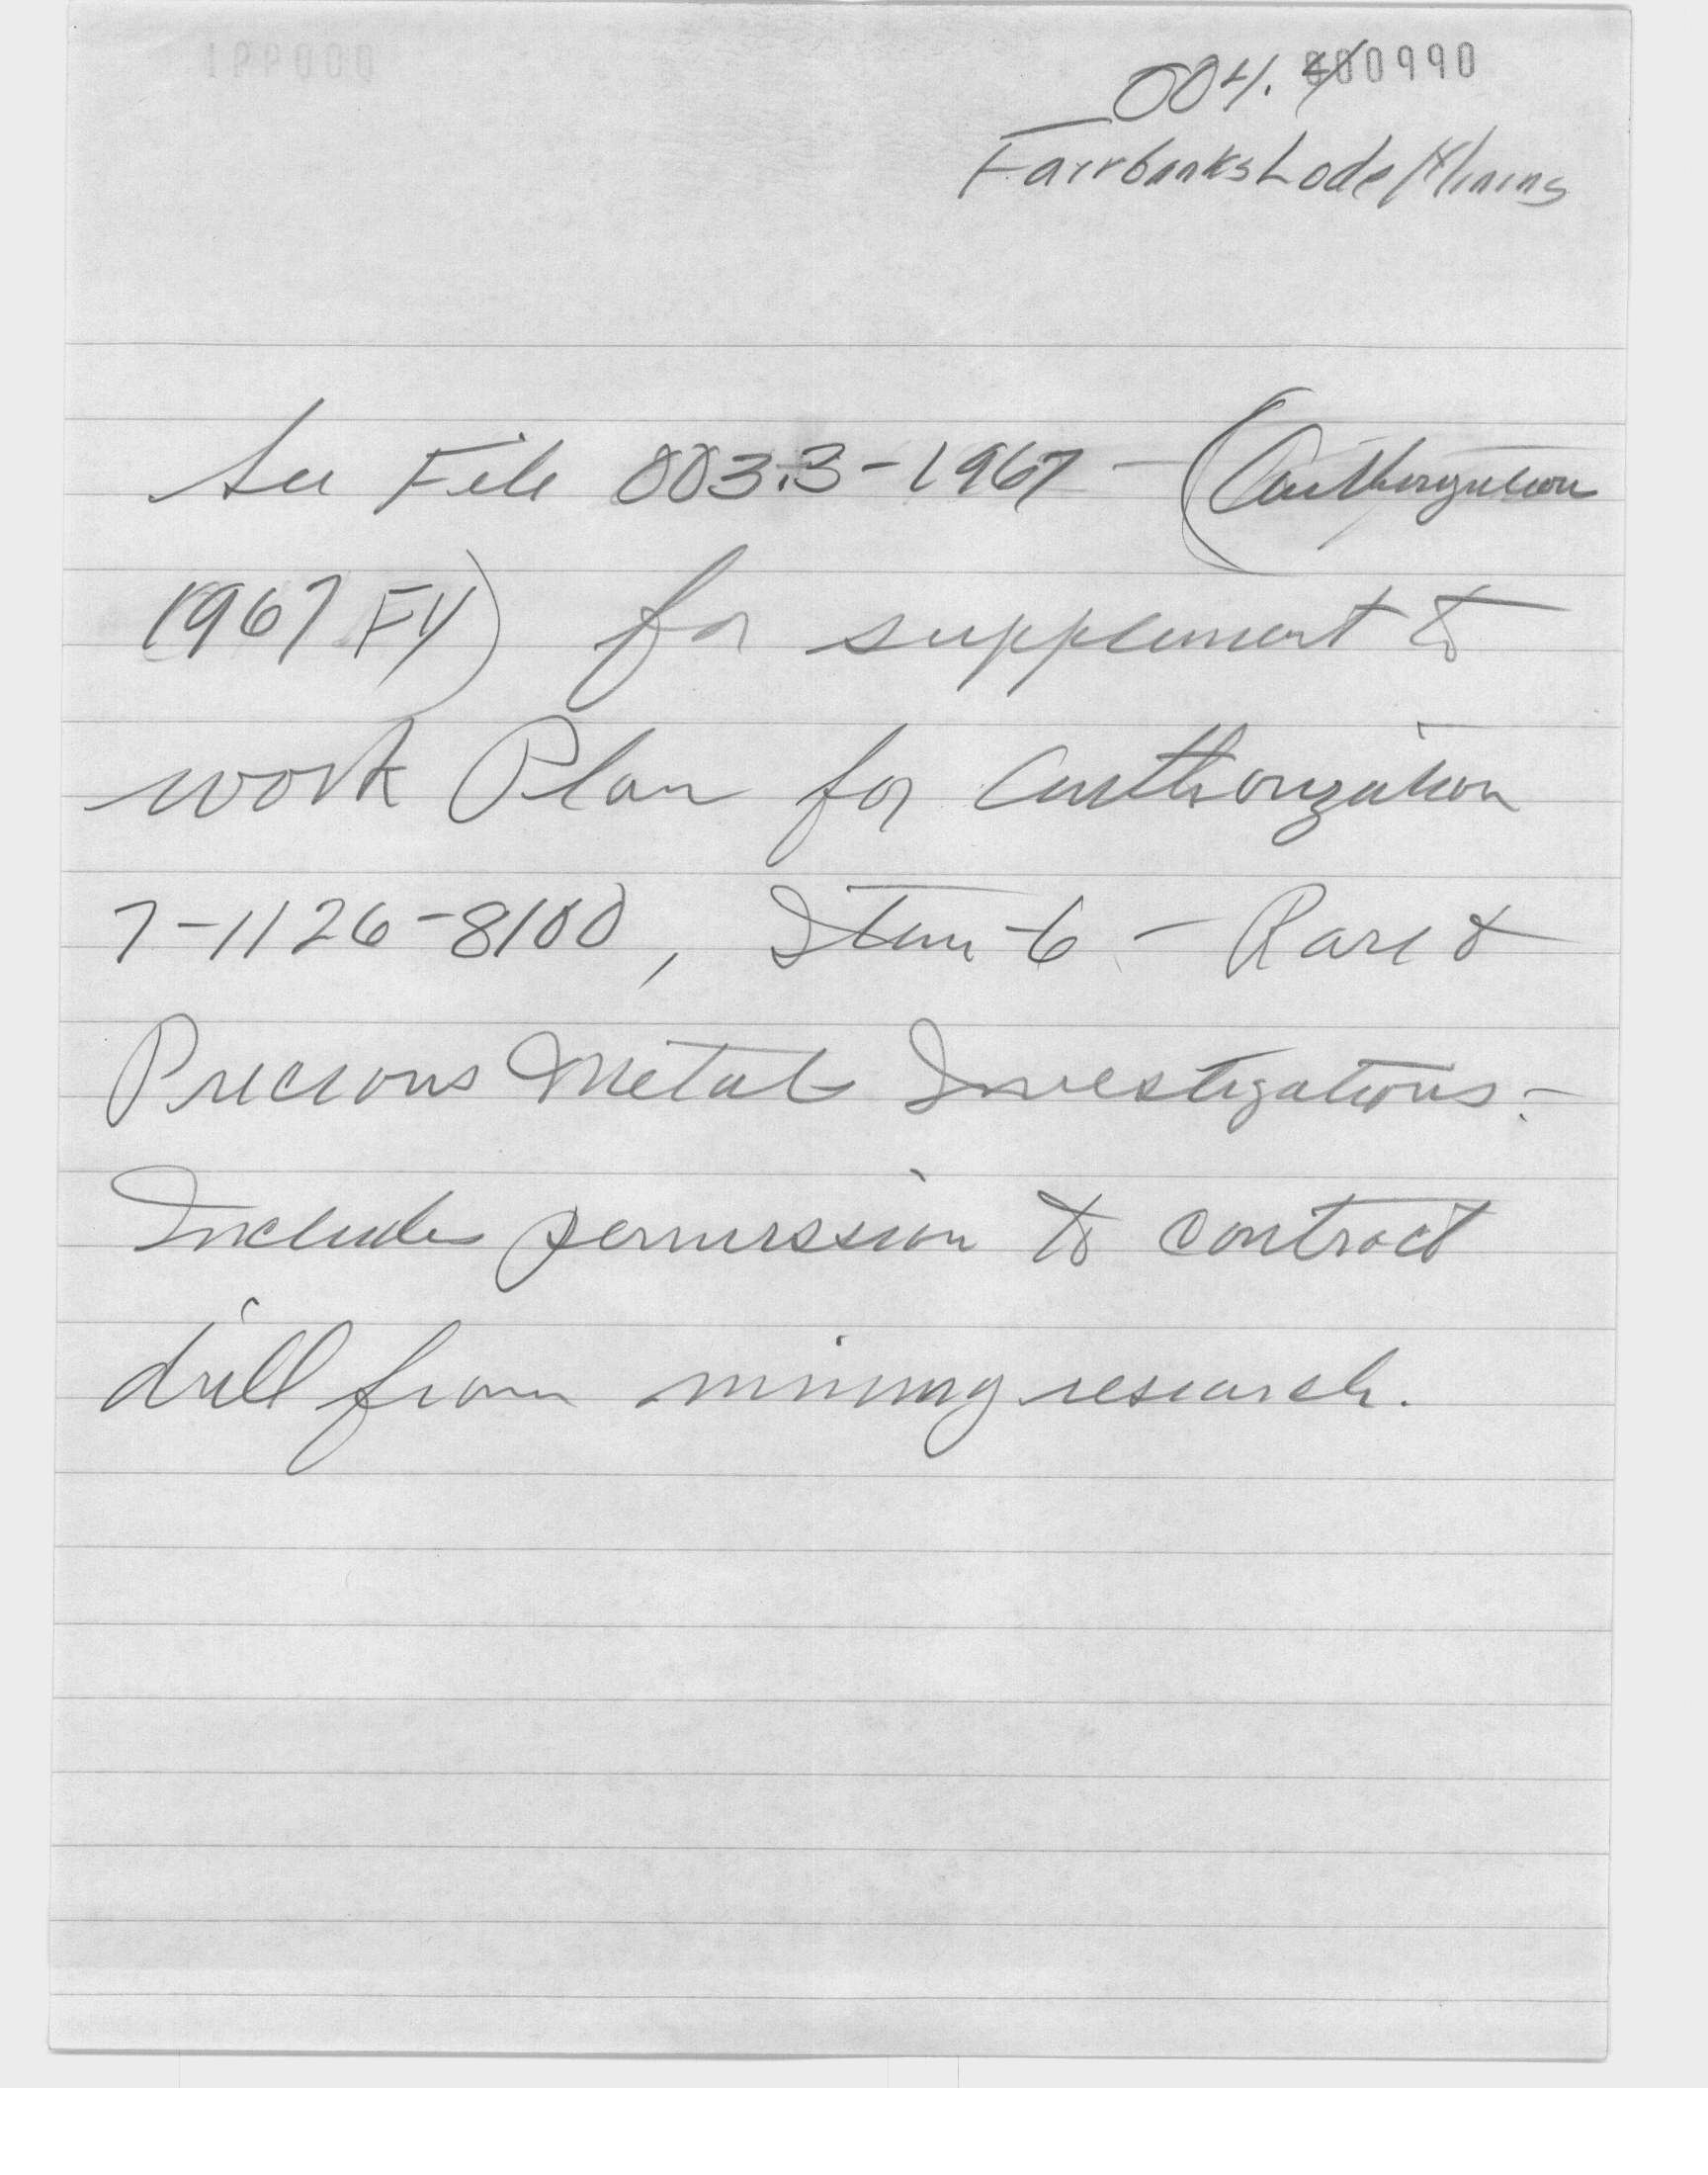 004.4
000990
Fairbanks Lode Mining
See File 003.3-1967 - (Authorization
1967 FY) for supplement to
work Plan for Authorization
7-1126-8100, Item 6 - Rare &
Precious Metals Investigations -
Includes permission to contract
drill from mining research.